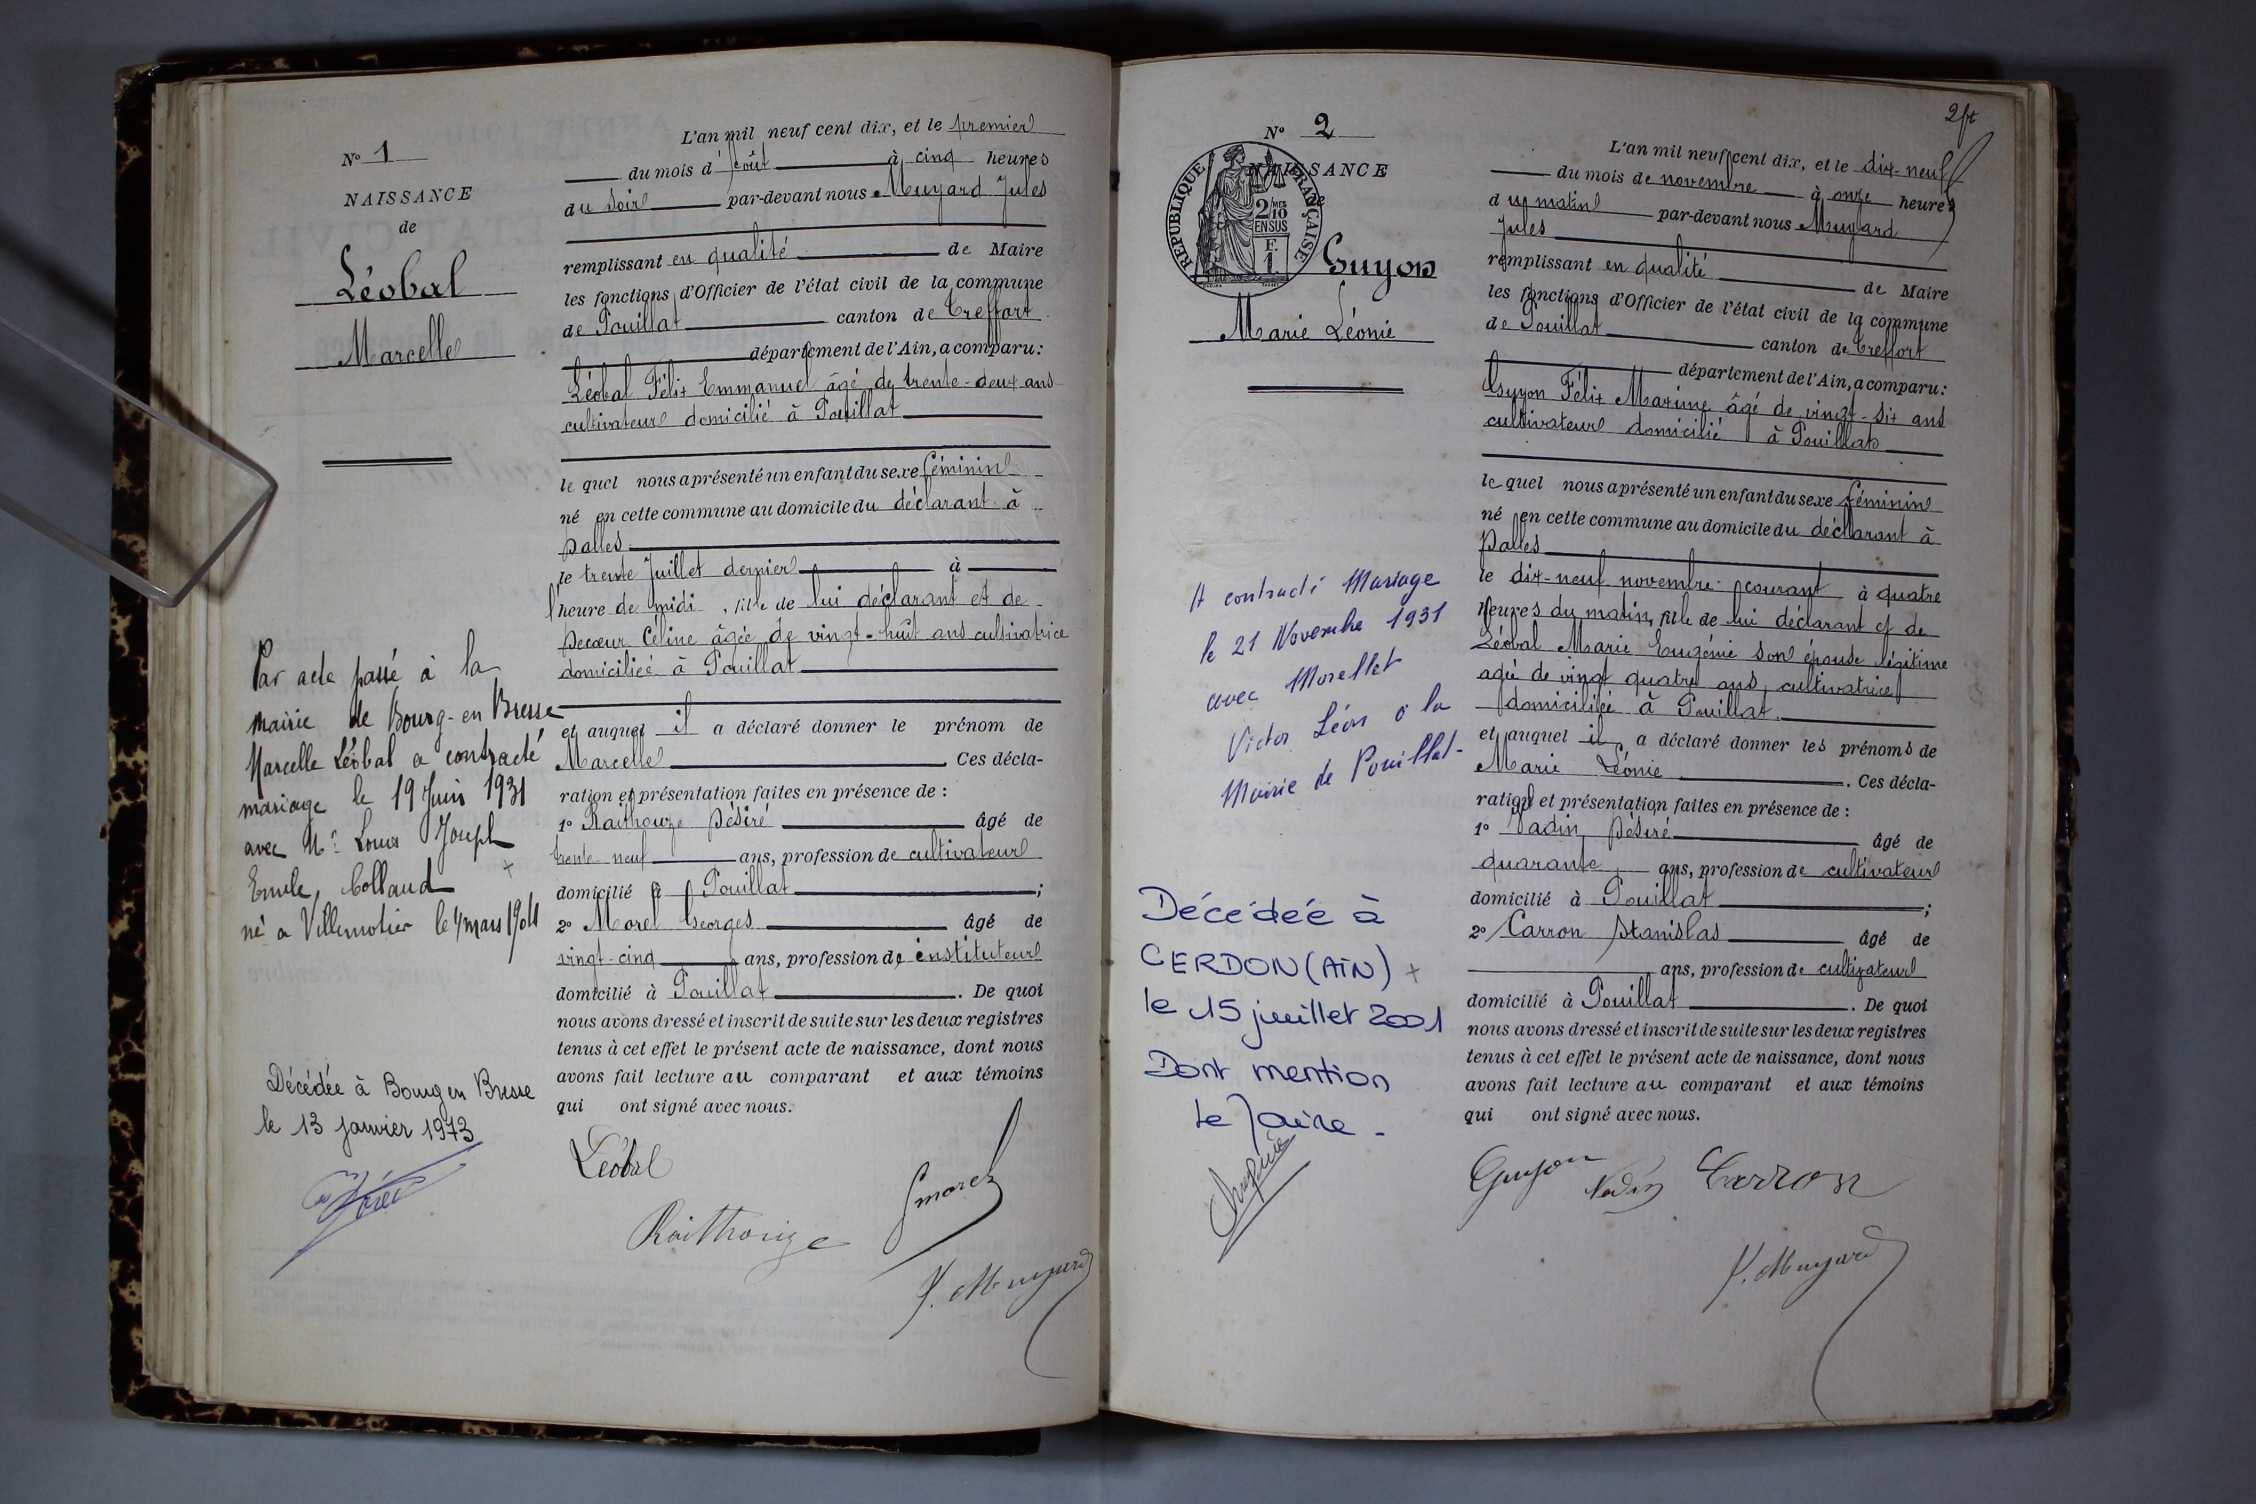 N° 1
NAISSANCE
de
Léobal
Marcelle
L'an mil neuf cent dix, et le premier
du mois d'août à cinq heures
du soir par-devant nous Muyard Jules
remplissant en qualité de Maire
les fonctions d'Officier de l'état civil de la commune
de Pouillat canton de Treffort
département de l'Ain, a comparu:
Léobal Félix Emmanuel âgé de trente-deux ans
cultivateur domicilié à Pouillat
le quel nous a présenté un enfant du sexe féminin
né en cette commune au domicile du déclarant à
Dalles
le trente Juillet dernier à
l'heure de midi, fille de lui déclarant et de
Decœur Céline âgée de vingt-huit ans cultivatrice
domiciliée à Pouillat
et auquel il a déclaré donner le prénom de
Marcelle Ces décla-
ration et présentation faites en présence de :
1° Raithouze Désiré âgé de
trente neuf ans, profession de cultivateur
domicilié à Pouillat ;
2° Morel Georges âgé de
vingt-cinq ans, profession de instituteur
domicilié à Pouillat . De quoi
nous avons dressé et inscrit de suite sur les deux registres
tenus à cet effet le présent acte de naissance, dont nous
avons fait lecture au comparant et aux témoins
qui ont signé avec nous.
Léobal
Raithouze
GMorel
J. Muyard
Par acte passé à la
mairie de Bourg-en Bresse
Marcelle Léobal a contracté
mariage le 19 Juin 1931
avec Mr Louis Joseph
Emile, Collaud +
né a Villemotier le 4 mars 1904
Décédée à Bourg en Bresse
le 13 janvier 1973
2ft
N° 2
NAISSANCE
de
REPUBLIQUE FRANÇAISE
2 MES
10
EN SUS
F.
1.
Guyon
Marie Léonie
L'an mil neuf cent dix, et le dix-neuf
du mois de novembre à onze heures
du matin par-devant nous Muyard
Jules
remplissant en qualité de Maire
les fonctions d'Officier de l'état civil de la commune
de Pouillat canton de Treffort
département de l'Ain, a comparu:
Guyon Félix Maxime âgé de vingt-six ans
cultivateur domicilié à Pouillat
le quel nous a présenté un enfant du sexe féminin
né en cette commune au domicile du déclarant à
Dalles
le dix-neuf novembre courant à quatre
heures du matin, fille de lui déclarant et de
Léobal Marie Eugénie son épouse légitime
agée de vingt quatre ans, cultivatrice
domiciliée à Pouillat.
et auquel il a déclaré donner les prénoms de
Marie Léonie . Ces décla-
ration et présentation faites en présence de :
1° Nadin Désiré âgé de
quarante ans, profession de cultivateur
domicilié à Pouillat ;
2° Carron Stanislas âgé de
ans, profession de cultivateur
domicilié à Pouillat . De quoi
nous avons dressé et inscrit de suite sur les deux registres
tenus à cet effet le présent acte de naissance, dont nous
avons fait lecture au comparant et aux témoins
qui ont signé avec nous.
Guyon Nadin Carron
J. Muyard
A contracté Mariage
le 21 Novembre 1931
avec Morellet
Victor Léon à la
Mairie de Pouillat-
Décédée à
CERDON (AIN) +
le 15 juillet 2001
Dont mention
Le Maire -